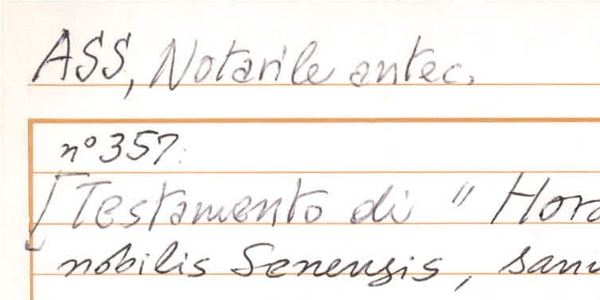 ASS, Notarile antec.
n° 357.
[Testamento di " Hora
nobilis Senensis, sani